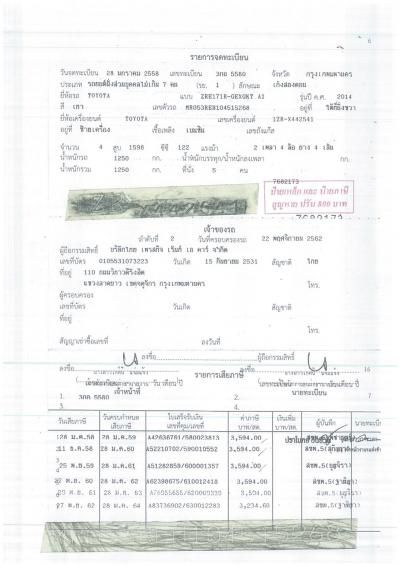 6
รายการจดทะเบียน
วันจดทะเบียน 28 มกราคม 2558 เลขทะเบียน 3กด 5580 จังหวัด กรุงเทพมหานคร
ประเภท รถยนต์นั่งส่วนบุคคลไม่เกิน 7 คน (รย. 1 ) ลักษณะ เก๋งสองตอน
ยี่ห้อรถ TOYOTA แบบ ZRE171R-GEXGKT A1 รุ่นปี ค.ศ. 2014
สี เทา เลขตัวรถ MR053REH104515268 อยู่ที่
ยี่ห้อเครื่องยนต์ TOYOTA เลขเครื่องยนต์ 1ZR-X442541
อยู่ที่ ซ้ายเครื่อง เชื้อเพลิง เบนซิน เลขถังแก๊ส
จำนวน 4 สูบ 1598 ซีซี 122 แรงม้า 2 เพลา 4 ล้อ ยาง 4 เส้น
น้ำหนักรถ 1250 กก. น้ำหนักบรรทุก/น้ำหนักลงเพลา กก.
น้ำหนักรวม 1250 กก. ที่นั่ง 5 คน
7682173
ป้ายเหล็ก และ ป้ายภาษี
สูญหาย ปรับ 800 บาท
7682173
เจ้าของรถ
ลำดับที่ 2 วันที่ครอบครองรถ 22 พฤศจิกายน 2562
ผู้ถือกรรมสิทธิ์ บริษัทไทย เพรสทีจ เร้นท์ เอ คาร์ จำกัด
เลขที่บัตร 0105531073223 วันเกิด 15 กันยายน 2531 สัญชาติ ไทย
ที่อยู่ 110 ถนนวิภาวดีรังสิต
แขวงลาดยาว เขตจตุจักร กรุงเทพมหานคร โทร.
ผู้ครอบครอง
เลขที่บัตร วันเกิด สัญชาติ
ที่อยู่ โทร.
สัญญาเช่าซื้อเลขที่ ลงวันที่
ลงชื่อ ผู้ถือกรรมสิทธิ์
ลงชื่อ ลงชื่อ 16
รายการเสียภาษี
เจ้าหน้าที่ นายทะเบียน
1. 3กด 5580 2.
3. 4.
วันเสียภาษี วันครบกำหนดเสียภาษี ใบเสร็จรับเงินเล่มที่/เลขที่ ค่าภาษี บาท/สต. เงินเพิ่ม บาท/สต. ผู้บันทึก นายทะเบียน
28 ม.ค.58 28 ม.ค.59 A42636761/580023813 3,594.00
21 ธ.ค.58 28 ม.ค. 60 A52210702/590010552 3,594.00
25 พ.ย.59 28 ม.ค. 61 A51282859/600001357 3,594.00
28 ม.ค. 62 A62398675/610012418 3,594.00
พ.ย. 61 28 ม.ค. 63 3,594.00
27 พ.ย. 62 28 ม.ค. 64 A83736902/630012283 3,234.60